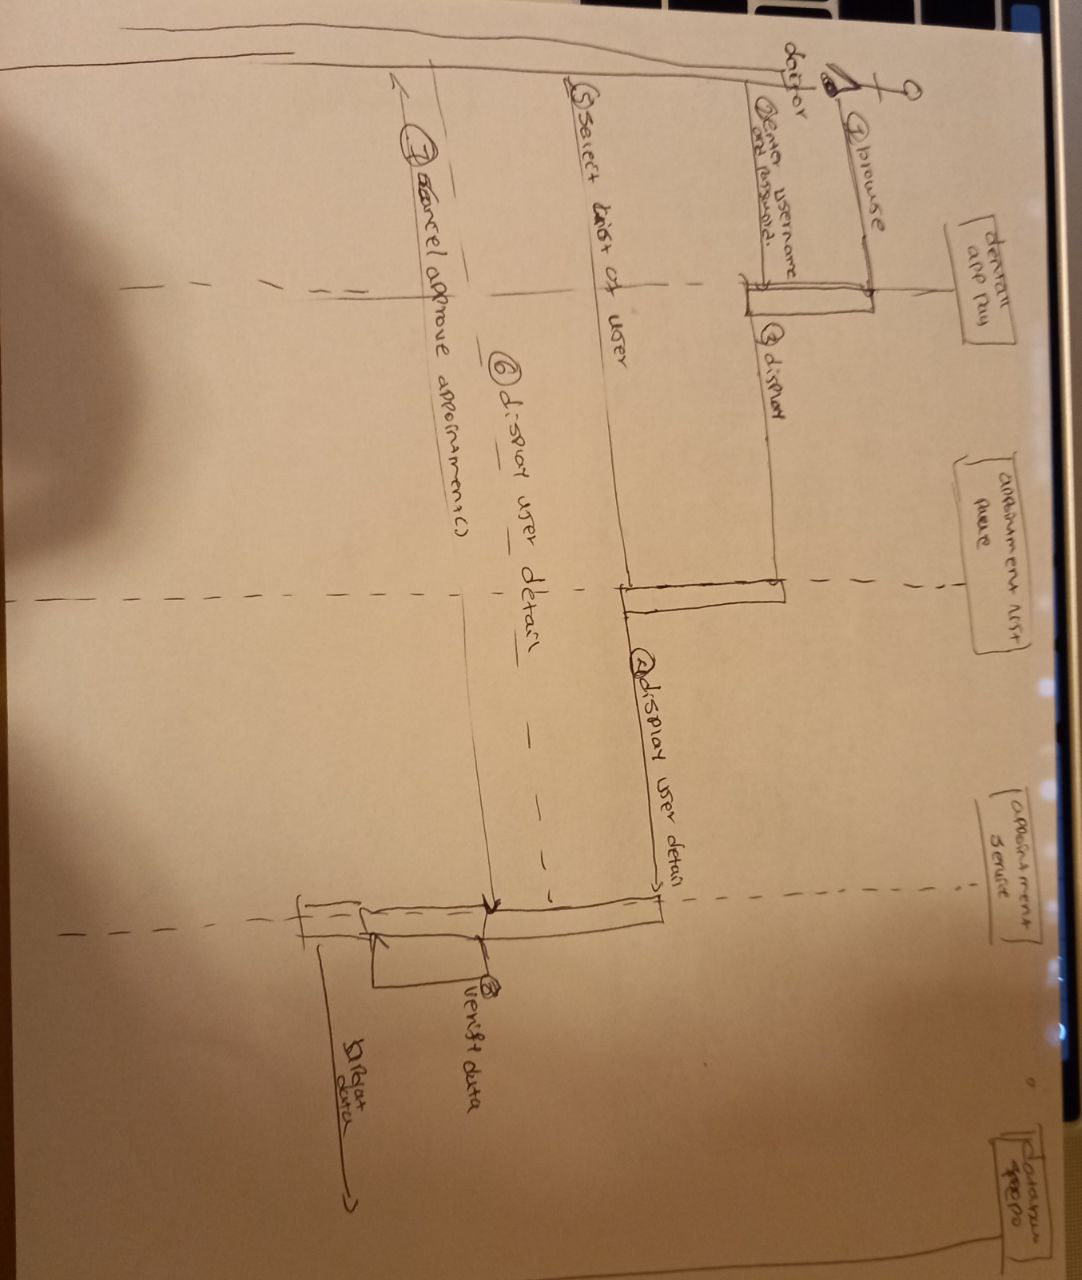 doctor
dentall
app pay
appointment list
appointment
service
database
repo
① browse
② enter username
and password.
③ display
④ display user detail
⑤ select list of user
⑥ display user detail
⑦ cancel approve appointment()
⑧ verify data
data